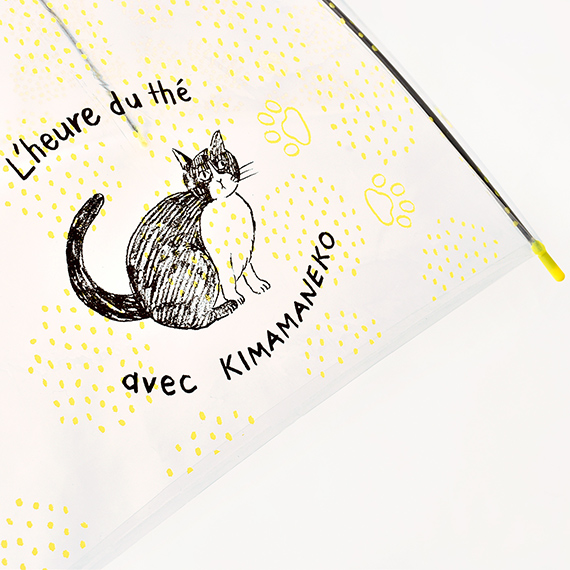 L'heure du thé
avec KIMAMANEKO